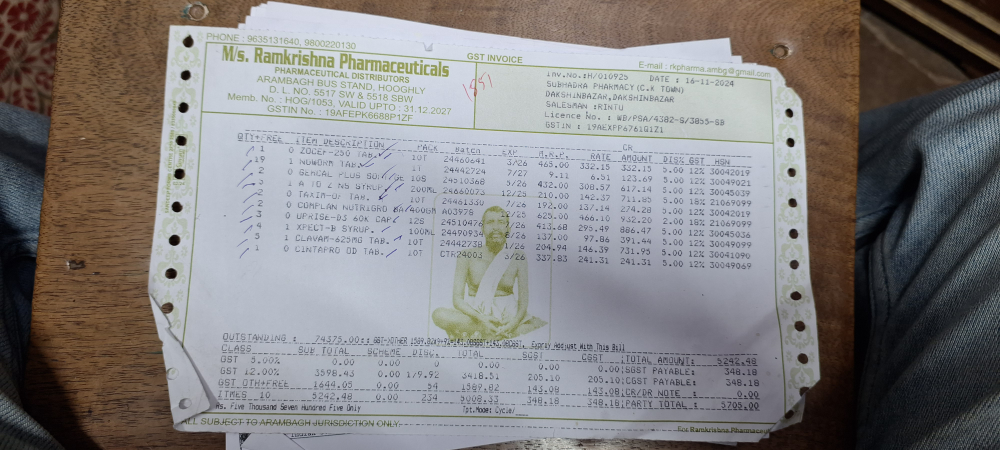 PHONE : 9635131640, 9800220130
GST INVOICE
E-mail : rkpharma.ambg@gmail.com
M/s. Ramkrishna Pharmaceuticals
PHARMACEUTICAL DISTRIBUTORS
ARAMBAGH BUS STAND, HOOGHLY
D. L. NO. 5517 SW & 5518 SBW
Memb. No. : HOG/1053, VALID UPTO : 31.12.2027
GSTIN No. : 19AFEPK6688P1ZF
Inv.No.:H/010925 DATE : 16-11-2024
SUBHADRA PHARMACY (C.K TOWN)
DAKSHINBAZAR,DAKSHINBAZAR
SALESMAN :RINTU
Licence No. : WB/PSA/4382-S/3855-SB
GSTIN : 19AEXFP6761G1Z1
CR
QTY+FREE ITEM DESCRIPTION PACK Batch EXP M.R.P. RATE AMOUNT DIS% GST HSN
1 0 ZOCEF-250 TAB. 10T 24460641 3/26 465.00 332.15 332.15 5.00 12% 30042019
19 1 NOWORM TAB. 1T 24442724 7/27 9.11 6.51 123.69 5.00 12% 30049021
2 0 GEMCAL PLUS 10S 24510368 5/26 432.00 308.57 617.14 5.00 12%
5 1 A TO Z NS SYRUP 200ML 24660073 12/25 210.00 142.37 711.85 5.00 18% 21069099
2 0 TAXIM-OF TAB. 10T 24461330 7/26 192.00 137.14 274.28 5.00 12% 30042019
2 0 COMPLAN NUTRIGRO 400GM A03978 12/25 625.00 466.10 932.20 2.00 18% 21069099
3 0 UPRISE-D3 60K CAP 12S 24510476 /26 413.68 295.49 886.47 5.00 12% 30045036
4 1 XPECT-B SYRUP. 100ML 24490934 /26 137.00 97.86 391.44 5.00 12% 30049099
5 1 CLAVAM-625MG TAB. 10T 24442738 1/26 204.94 146.39 731.95 5.00 12% 30041090
1 0 CINTAPRO OD TAB. 10T CTR24003 3/26 337.83 241.31 241.31 5.00 12% 30049069
OUTSTANDING : 74375.00 Expry Adjust With This Bill
CLASS SUB TOTAL SCHEME DISC. TOTAL SGST CGST TOTAL AMOUNT: 5242.48
GST 5.00% 0.00 0.00 0 0.00 0.00 0.00 SGST PAYABLE: 348.18
GST 12.00% 3598.43 0.00 179.92 3418.51 205.10 205.10 CGST PAYABLE: 348.18
GST OTH+FREE 1644.05 0.00 54 1589.82 143.08 143.08 CR/DR NOTE : 0.00
ITMES 10 5242.48 0.00 234 5008.33 348.18 348.18 PARTY TOTAL : 5705.00
Rs. Five Thousand Seven Hundred Five Only Tpt.Mode: Cycle/
ALL SUBJECT TO ARAMBAGH JURISDICTION ONLY
For Ramkrishna Pharmaceut